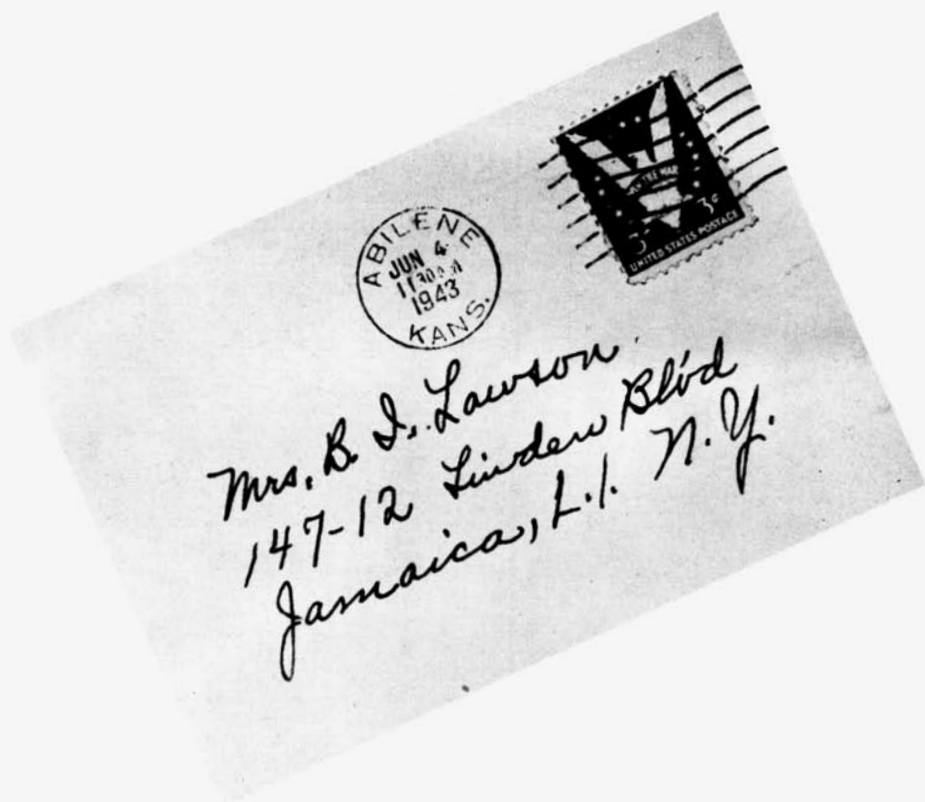 ABILENE
JUN 4
11 30 AM
1943
KANS.
WIN THE WAR
3¢ 3¢
UNITED STATES POSTAGE
Mrs. B. I. Lawson
147-12 Linden Blvd
Jamaica, L.I. N.Y.